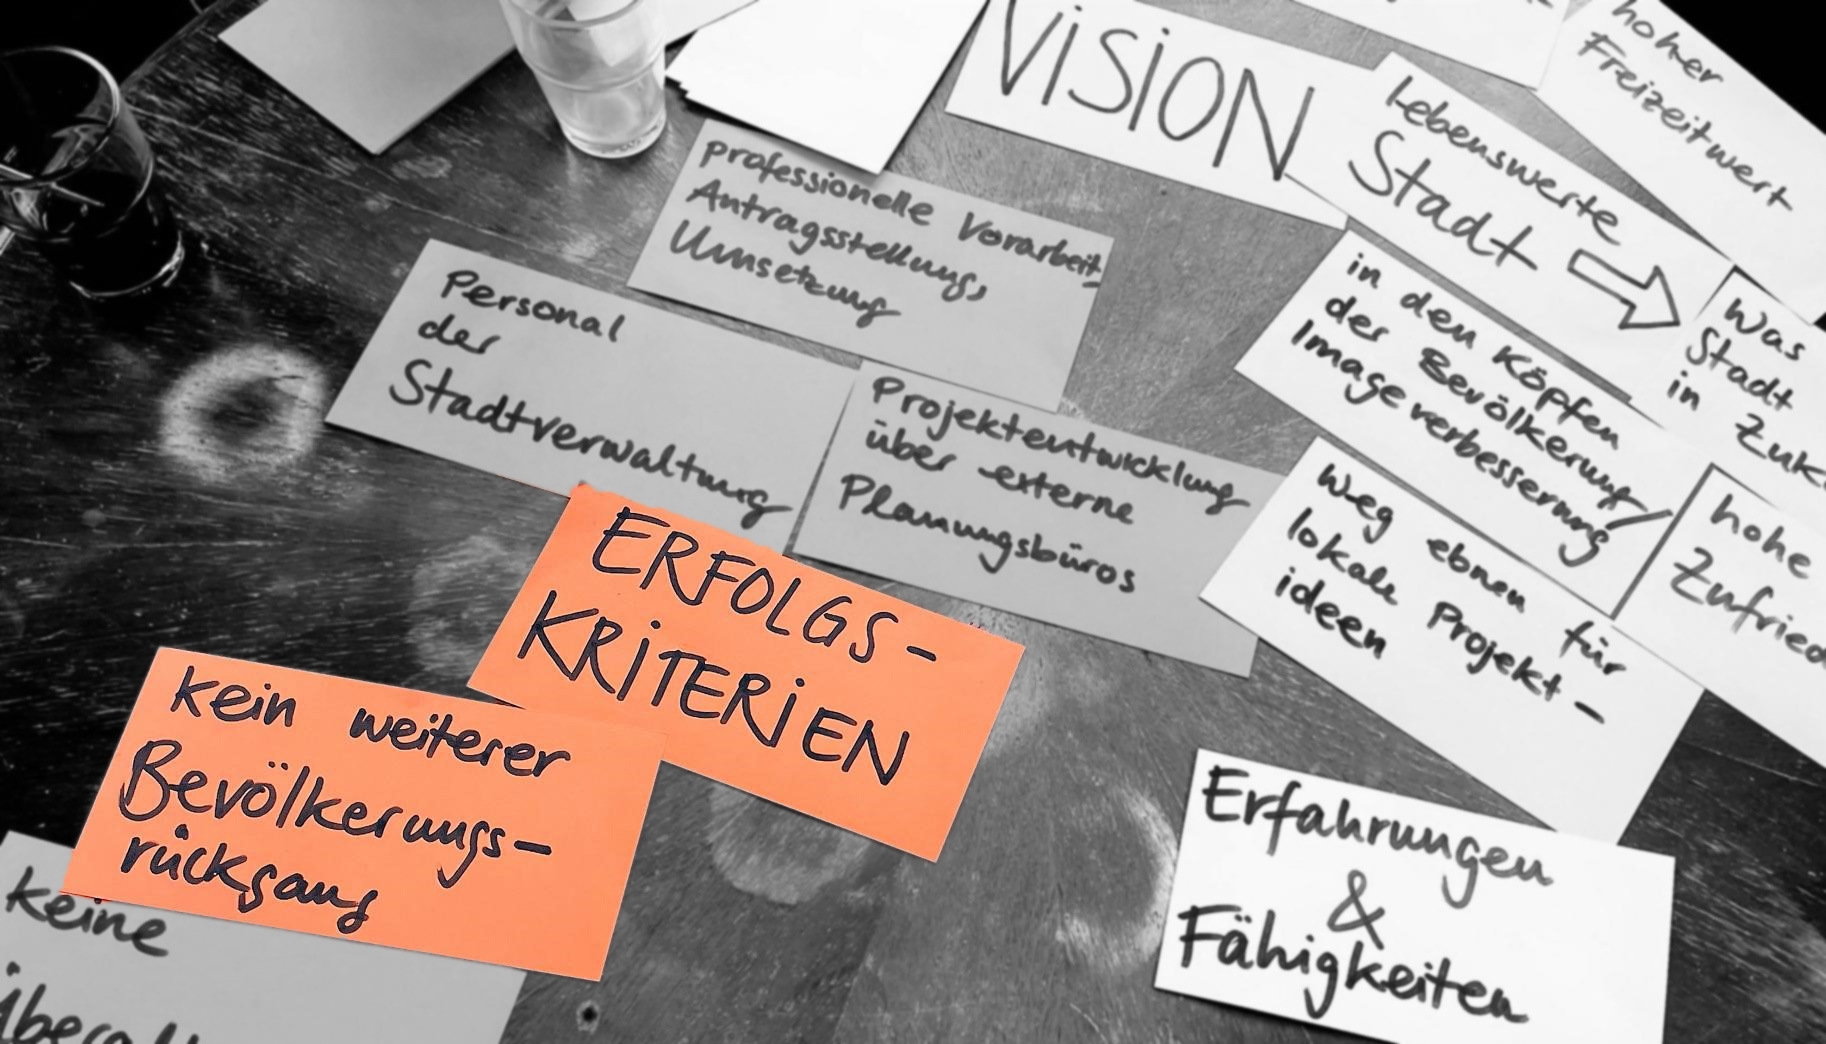 VISION
hoher
Freizeitwert
Lebenswerte
Stadt
professionelle Vorarbeit,
Antragsstellung,
Umsetzung
in den Köpfen
der Bevölkerung/
Imageverbesserung
Was
Stadt
in
Personal
der
Stadtverwaltung
Projektentwicklung
über externe
Planungsbüros
Weg ebnen für
lokale Projekt-
ideen
hohe
ERFOLGS-
KRITERIEN
kein weiterer
Bevölkerungs-
rückgang
Erfahrungen
&
Fähigkeiten
keine